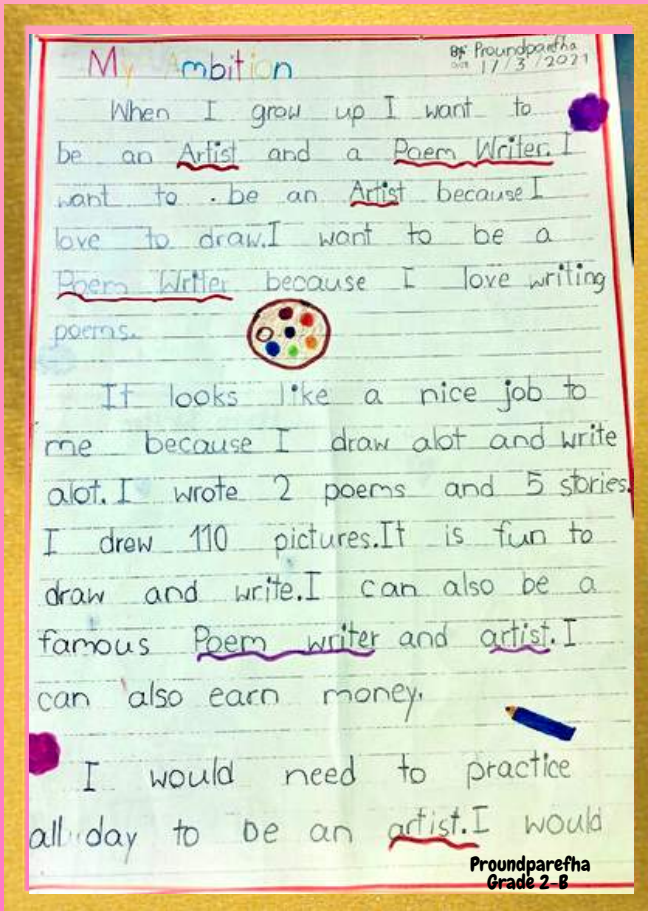 My Ambition
By Proundparefha
Date 17/3/2021
When I grow up I want to
be an Artist and a Poem Writer. I
want to . be an Artist because I
love to draw.I want to be a
Poem Writer because I love writing
poems.
It looks like a nice job to
me because I draw alot and write
alot. I wrote 2 poems and 5 stories.
I drew 110 pictures.It is fun to
draw and write.I can also be a
famous Poem writer and artist. I
can also earn money.
I would need to practice
all day to be an artist.I would
Proundparefha
Grade 2-B